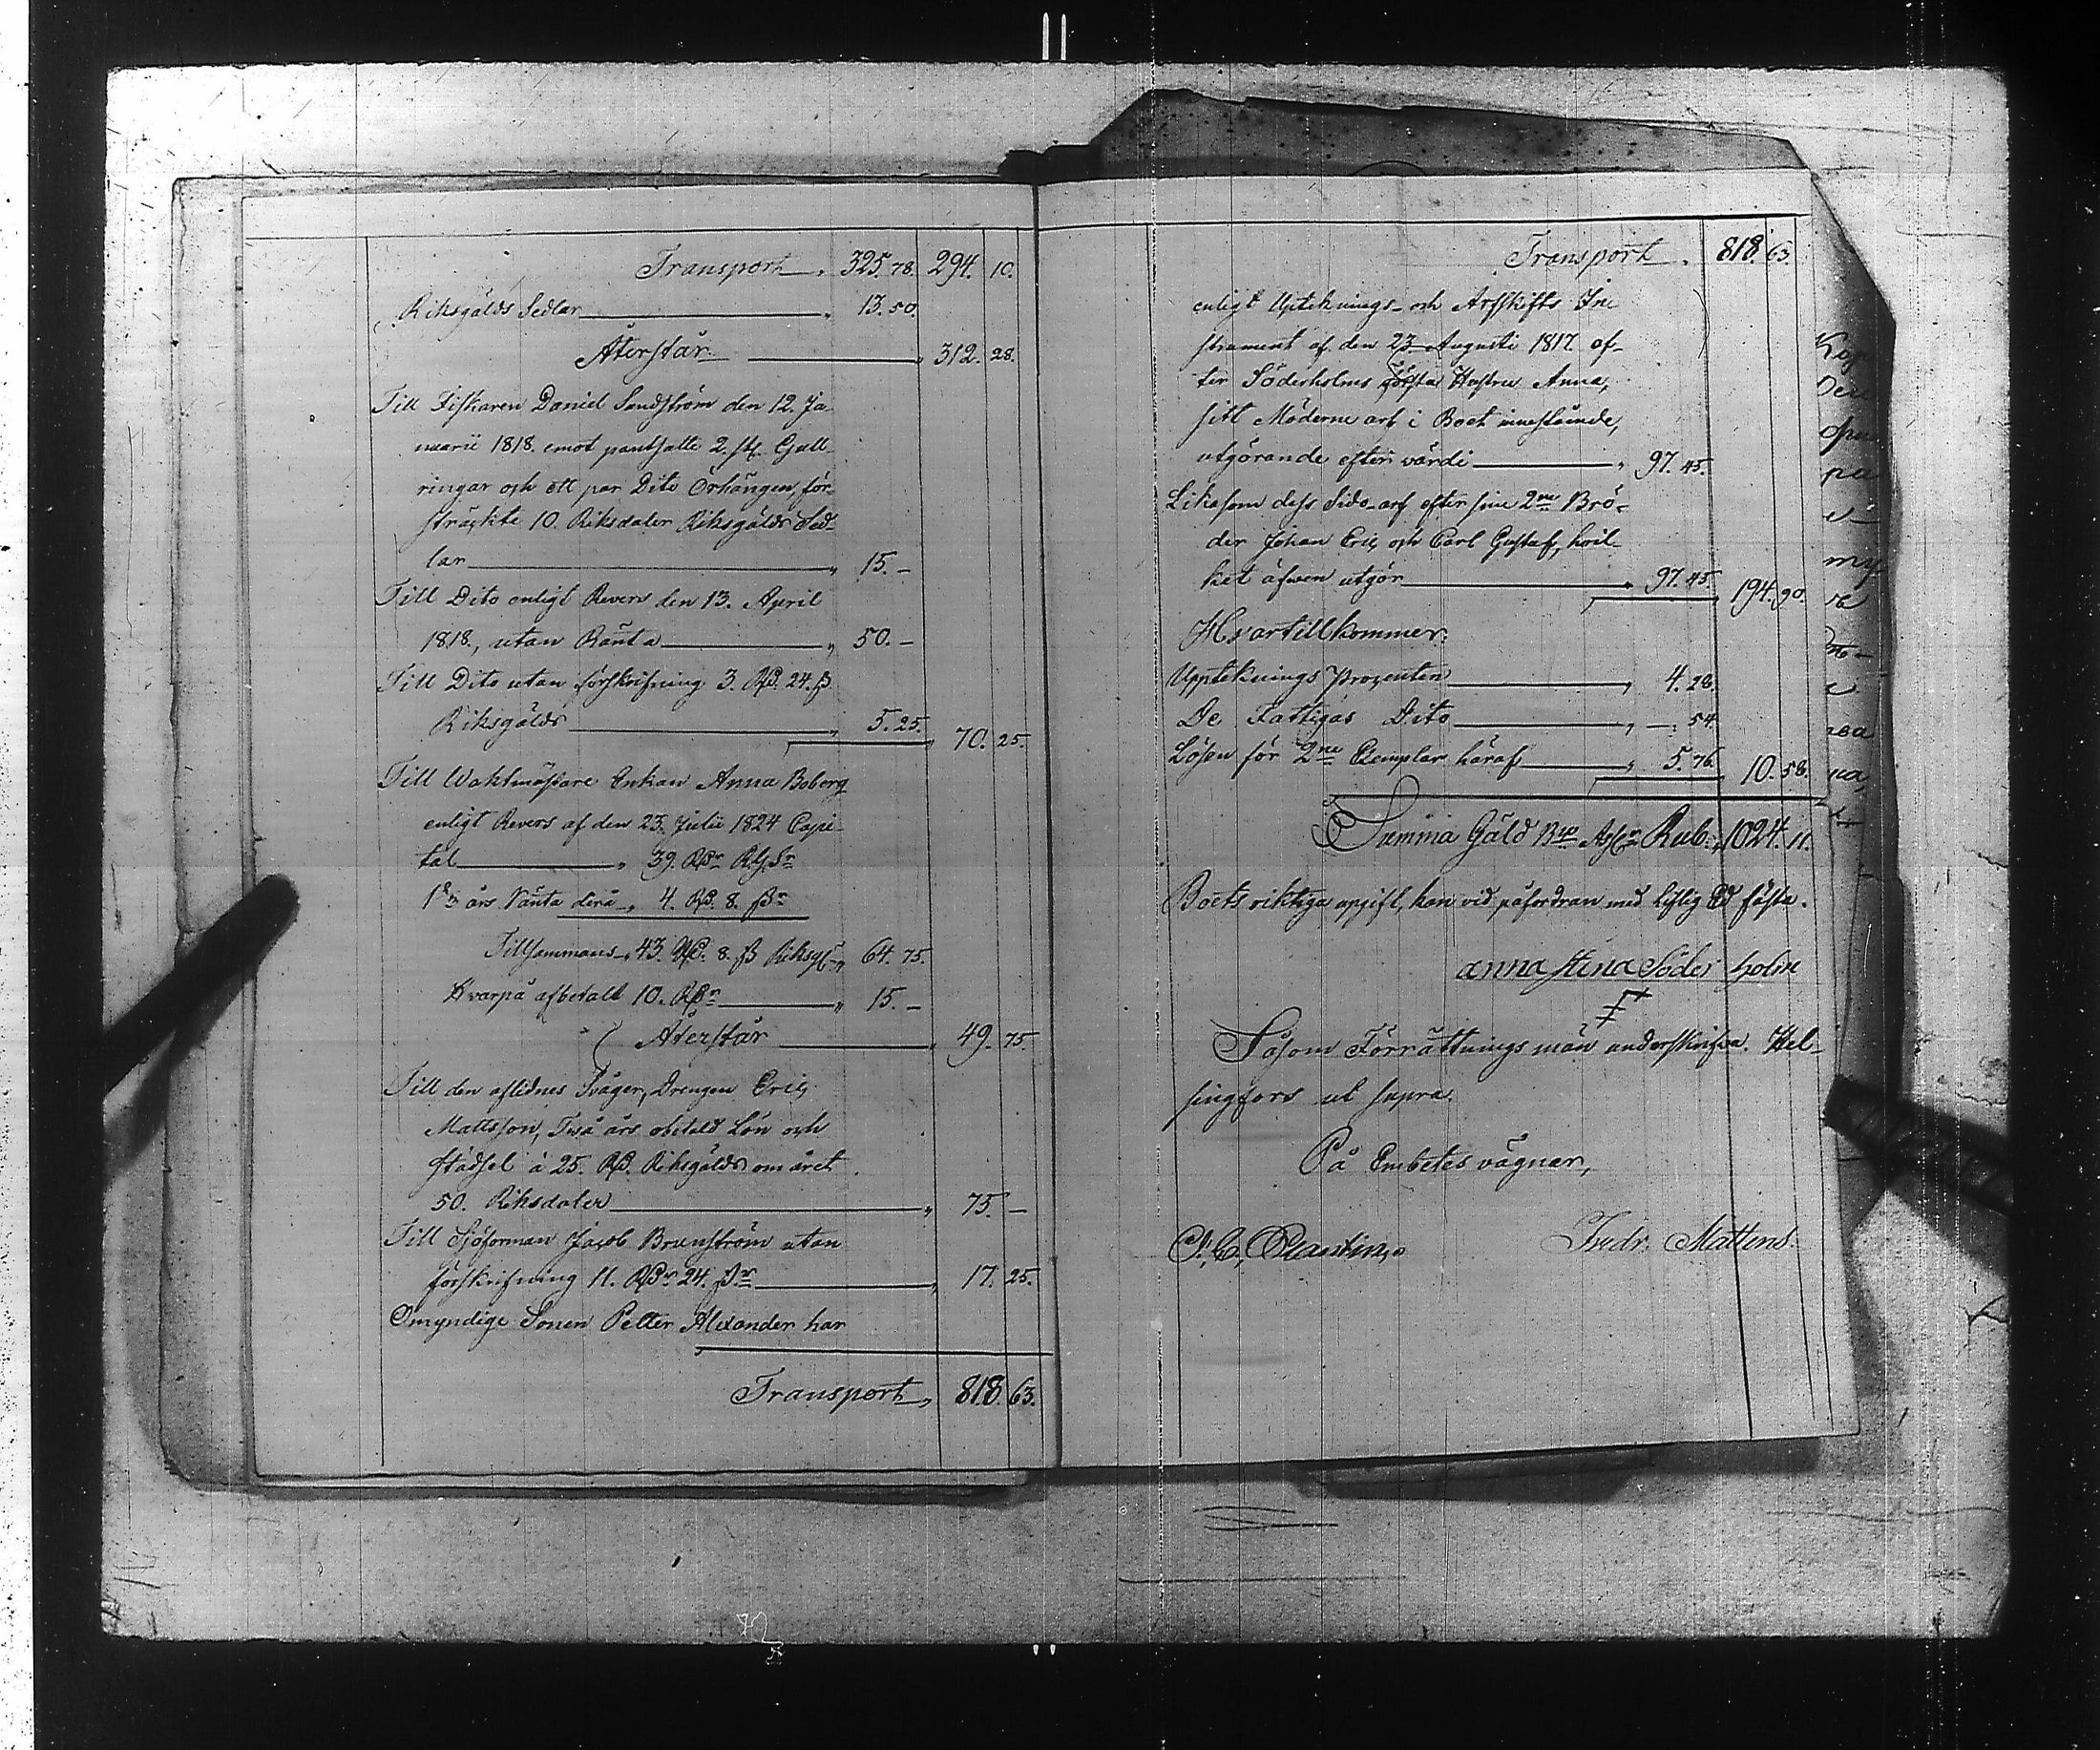 Transport „ 325. 78. 294. 10.
Riksgälds Sedlar „ 13. 50.
Återstår „ 312. 28.
Till Fiskaren Daniel Sandström den 12. Ja-
nuarii 1818. emot pantsatte 2. st. Gull-
ringar och ett par Dito Örhängen, för-
sträckte 10 Riksdaler Riksgälds Sed-
lar „ 15. –
Till Dito enligt Revers den 13. April
1818., utan Ränta „ 50. –
Till Dito utan förskrifning 3. RD. 24. ß
Riksgälds „ 5. 25. 70. 25.
Till Waktmästare Enkan Anna Boberg
enligt Revers af den 23. Julii 1824 Capi-
tal „ 39. RDr RGSr
års Ränta derå „ 4. RD. 8. ßr
Tillsammans „ 43. RD. 8. ß Riksg. „ 64. 75.
Hvarpå afbetalt 10. RDr „ 15. –
Återstår „ 49. 75.
Till den aflidnes Swåger, Drengen Eric
Mattsson, Två års obetald Lön och
städsel à 25. RD. Riksgälds om året
50. Riksdaler „ 75. –
Till Sjöforman Jacob Brunström utan
förskrifning 11. RDr 24. ßr „ 17. 25.
Omyndige Sonen Petter Alexander har
Transport „ 818. 63.
Transport „ 818. 63.
enligt Uptecknings- och Arfskifts In-
strument af den 23 Augusti 1817. ef-
ter Söderholms första Hustru Anna,
sitt Möderne arf i Boet innestående,
utgörande efter värde „ 97. 45.
Likasom dess Sido-arf efter sine 2ne Brö-
der Johan Eric och Carl Gustaf, hvil-
ket äfwen utgör „ 97. 45. 194. 90.
Hvartill kommer:
Uppteknings Procenten „ 4. 28.
De Fattigas Dito „ –. 54.
Lösen för 2ne Exemplar häraf „ 5. 76. 10. 58.
Summa Gäld Bco Assr Rub. „ 1024. 11.
Boets riktiga uppgift, kan vid påfordran med Liflig Ed fästa.
anna stina Söder holm
Såsom Förrättningsmän underskrifva. Hel-
singfors ut supra.
På Embetes vägnar,
Fredr. Mattens.